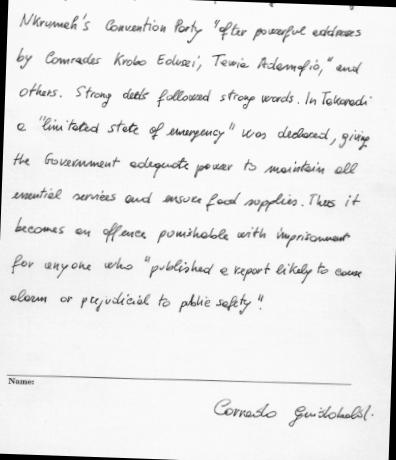 Nkrumah's Convention Party "after powerful addresses
by Comrades Krobo Edusei, Tawia Adamafio," and
others. Strong deeds followed strong words. In Takoradi
a "limitated state of emergency" was declared, giving
the Government adequate power to maintain all
essential services and ensure food supplies. Thus it
becomes an offence punishable with imprisonment
for anyone who "published a report likely to cause
alarm or prejudicial to public safety".
Name:
Corrado